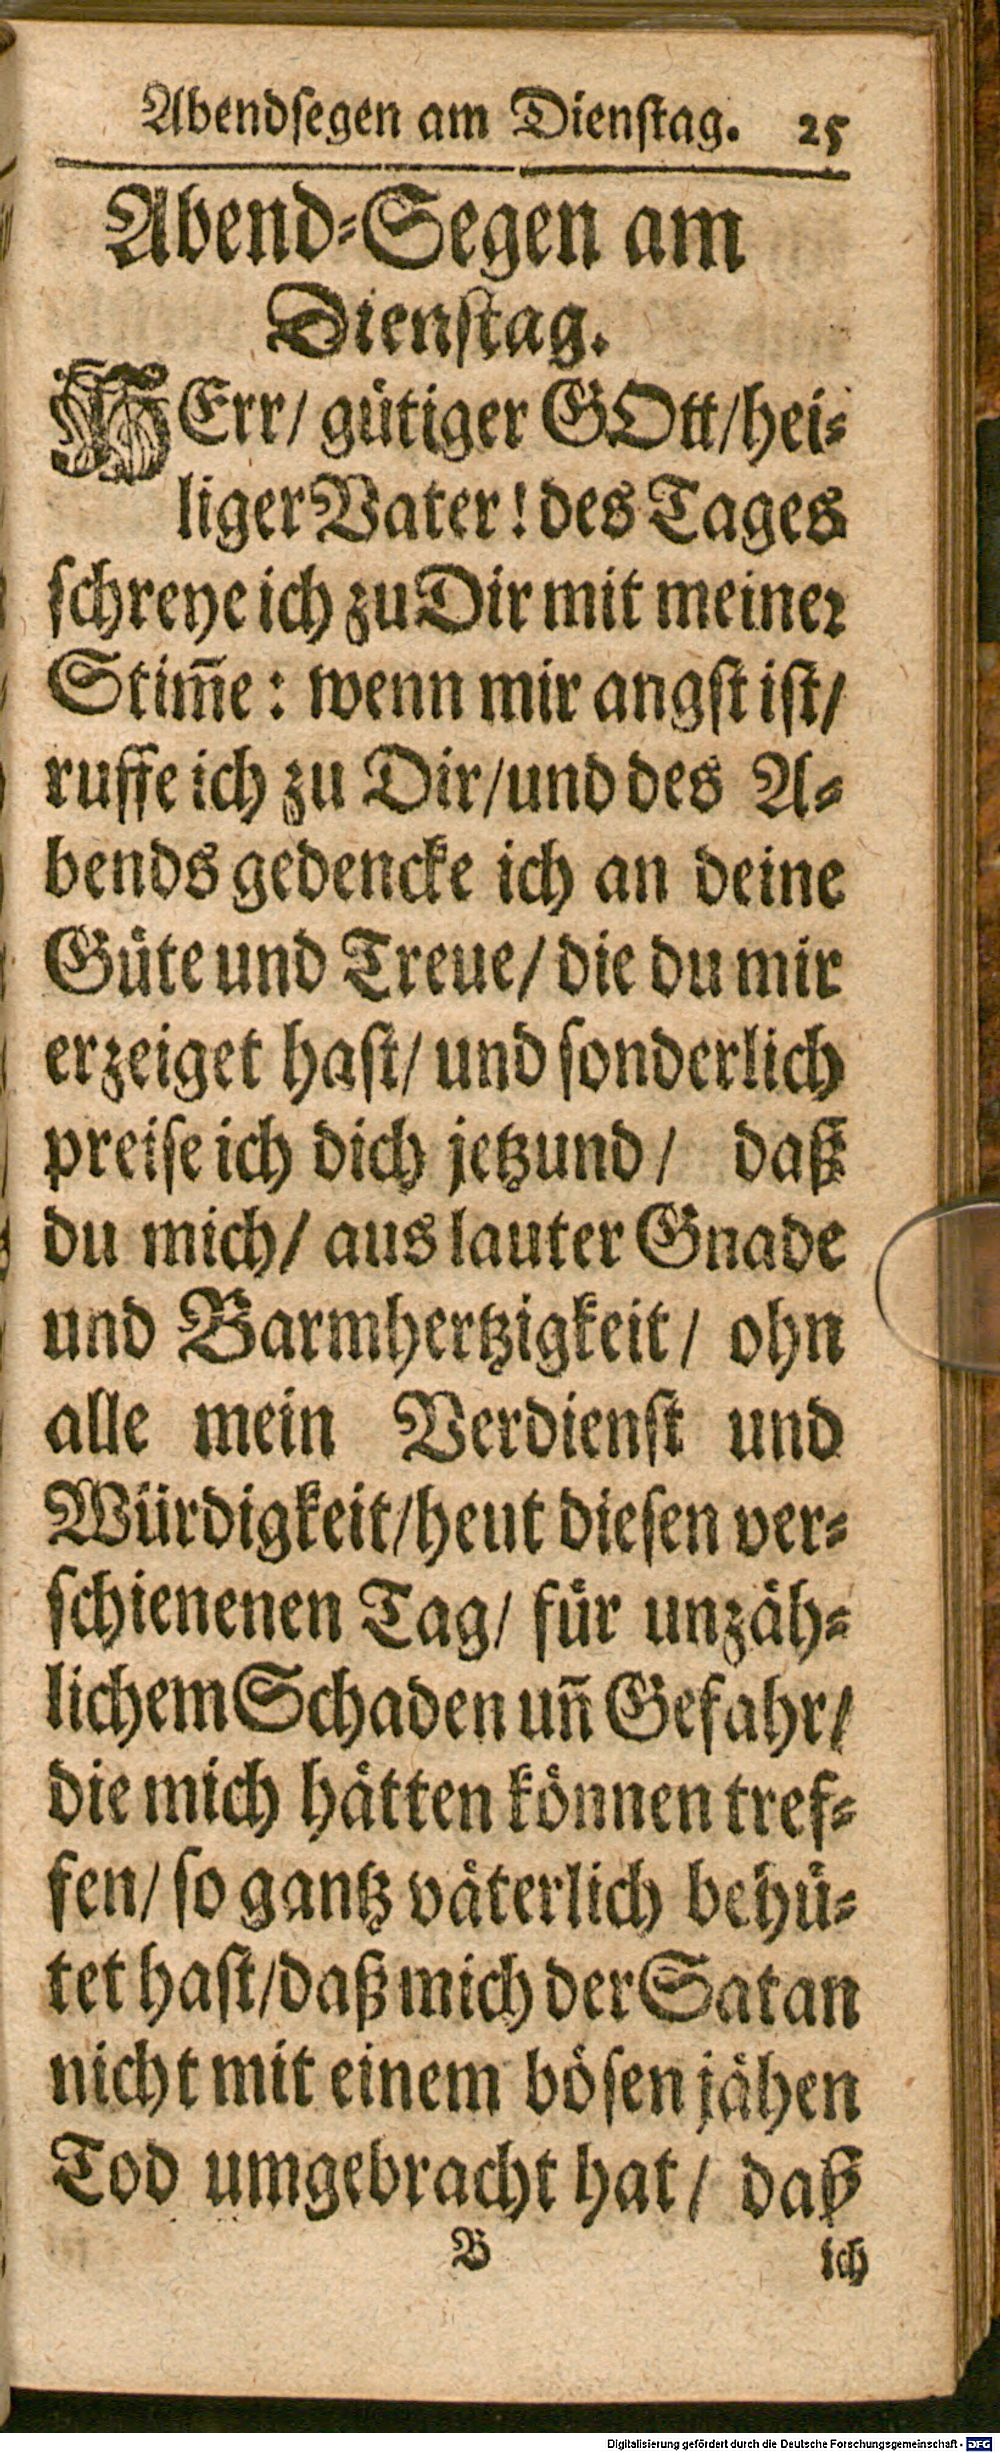 Abendsegen am Dienstag. 25
Abend-Segen am
Dienstag.
HErr/ gütiger GOtt/hei-
liger Vater! des Tages
schreye ich zu Dir mit meiner
Stim̃e: wenn mir angst ist/
ruffe ich zu Dir/und des A-
bends gedencke ich an deine
Güte und Treue/ die du mir
erzeiget hast/ und sonderlich
preise ich dich jetzund/ daß
du mich/ aus lauter Gnade
und Barmhertzigkeit/ ohn
alle mein Verdienst und
Würdigkeit/heut diesen ver-
schienenen Tag/ für unzäh-
lichem Schaden uñ Gefahr/
die mich hätten können tref-
fen/ so gantz väterlich behü-
tet hast/daß mich der Satan
nicht mit einem bösen jähen
Tod umgebracht hat/ daß
B ich
Digitalisierung gefördert durch die Deutsche Forschungsgemeinschaft - DFG